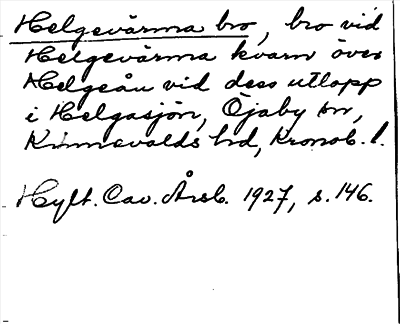 Helgevärma bro, bro vid
Helgevärma kvarn över
Helgeån vid dess utlopp
i Helgasjön, Öjaby sn,
Kinnevalds hd, Kronob. l.
Hylt. Cav. Årsb. 1927, s. 146.